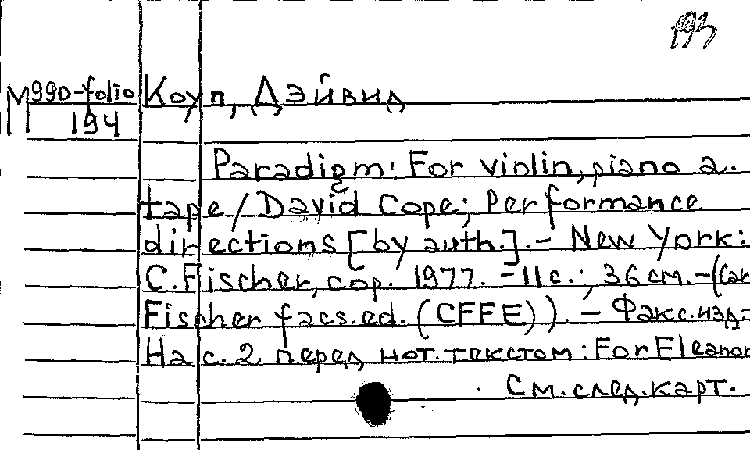 193
М990-folio
194
Коуп, Дэйвид
Paradigm: For violin, piano a.
tape / David Cope; Performance
directions [by auth.]. - New York:
C. Fischer, cop. 1977. - 11 с.; 36 см. - (Car
Fischer facs. ed. (CFFE)). - Факс. изд-
На с. 2 перед нот. текстом: For Eleanor
См. след. карт.